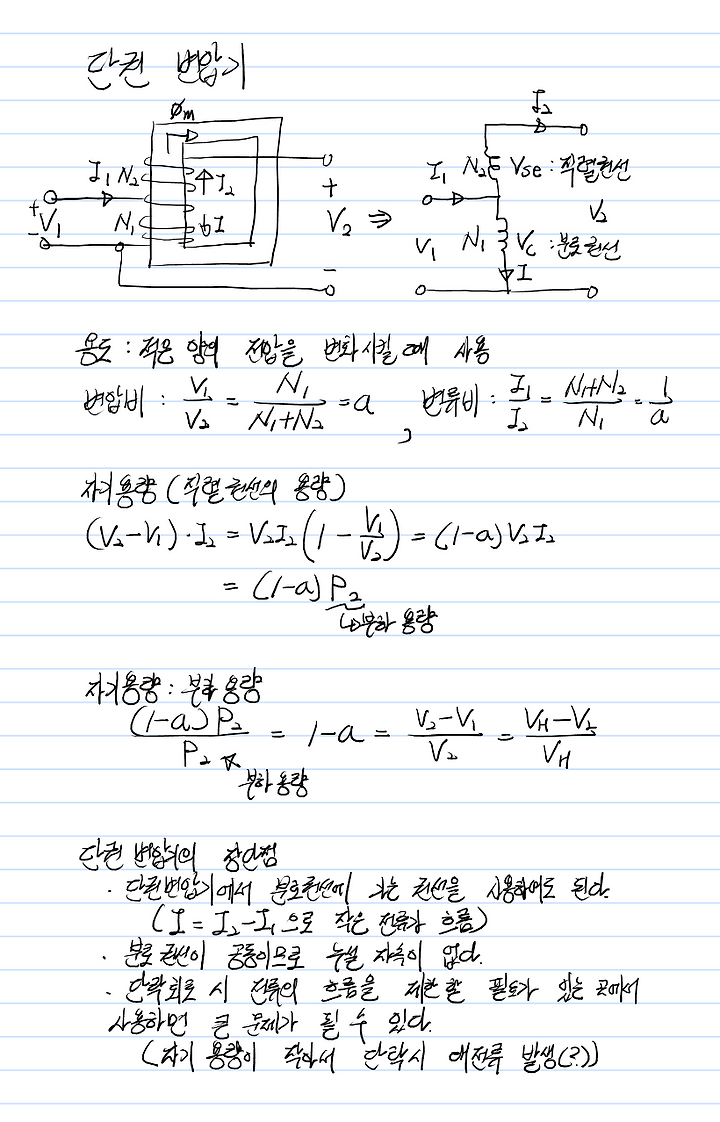 단권 변압기
Φm
I₁ N₂ I₂
+ V₁ - N₁ I
+ V₂ - ⇒
I₂
I₁ N₂ Vse : 직렬권선
V₂
V₁ N₁ Vc : 분로권선
I
용도 : 적은 양의 전압을 변화시킬 때 사용
변압비 : V₁/V₂ = N₁/(N₁+N₂) = a , 변류비 : I₁/I₂ = (N₁+N₂)/N₁ = 1/a
자기용량 (직렬 권선의 용량)
(V₂-V₁)·I₂ = V₂I₂(1 - V₁/V₂) = (1-a)V₂I₂
= (1-a)P₂
↳부하 용량
자기용량 : 부하 용량
(1-a)P₂/P₂ = 1-a = (V₂-V₁)/V₂ = (V_H-V_L)/V_H
부하 용량
단권 변압기의 장단점
· 단권변압기에서 분로권선에 가는 권선을 사용하여도 된다.
(I = I₂-I₁으로 작은 전류가 흐름)
· 분로 권선이 공통이므로 누설 자속이 없다.
· 단락회로 시 전류의 흐름을 제한할 필요가 있는 곳에서
사용하면 큰 문제가 될 수 있다.
(자기 용량이 작아서 단락시 대전류 발생(?))